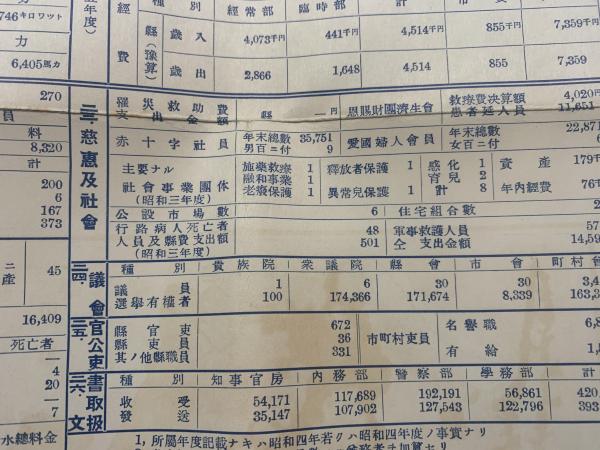 746キロワット
力
6,405馬力
270
員
料
8,320
計
200
6
167
373
ニ産 45
16,409
死亡者
—
4
20
—
7
水總料金
年度)
經費
種 別 經常部 臨時部 計
縣(豫算) 歲入 4,073千円 441千円 4,514千円 855千円 7,359千円
歲出 2,866 1,648 4,514 855 7,359
三三、慈惠及社會
罹災救助費額
支出金 縣 — 円 恩賜財團濟生會 救療費決算額 4,020円
患者延人員 11,651
赤十字社員 年末總數 35,751 愛國婦人會員 年末總數 22,871
男百ニ付 9 女百ニ付 6
主要ナル社會事業團体(昭和三年度)
施藥救療 1 釋放者保護 1 感化 1 資產 179千
融和事業 1 育兒 2
老癈保護 1 異常兒保護 1 計 8 年內經費 76千
公設市場數 6 住宅組合數
行路病人死亡者 48 軍事救護人員 57
人員及縣費支出額 501 仝 支出金額 14,59
(昭和三年度)
三四、議會
種別 貴族院 衆議院 縣會 市會 町村會
議員 1 6 30 30 3,4
選擧有權者 100 174,366 171,674 8,339 163,3
三五、官公吏
縣官吏 672
縣吏員 36
其ノ他縣職員 331
市町村吏員 名譽職 6,8
有給 1,
三六、文書取扱
種別 知事官房 內務部 警察部 學務部 計
收受 54,171 117,689 192,191 56,861 420
發送 35,147 107,902 127,543 122,796 393
1, 所屬年度記載ナキハ昭和四年若クハ昭和四年度ノ事實ナリ